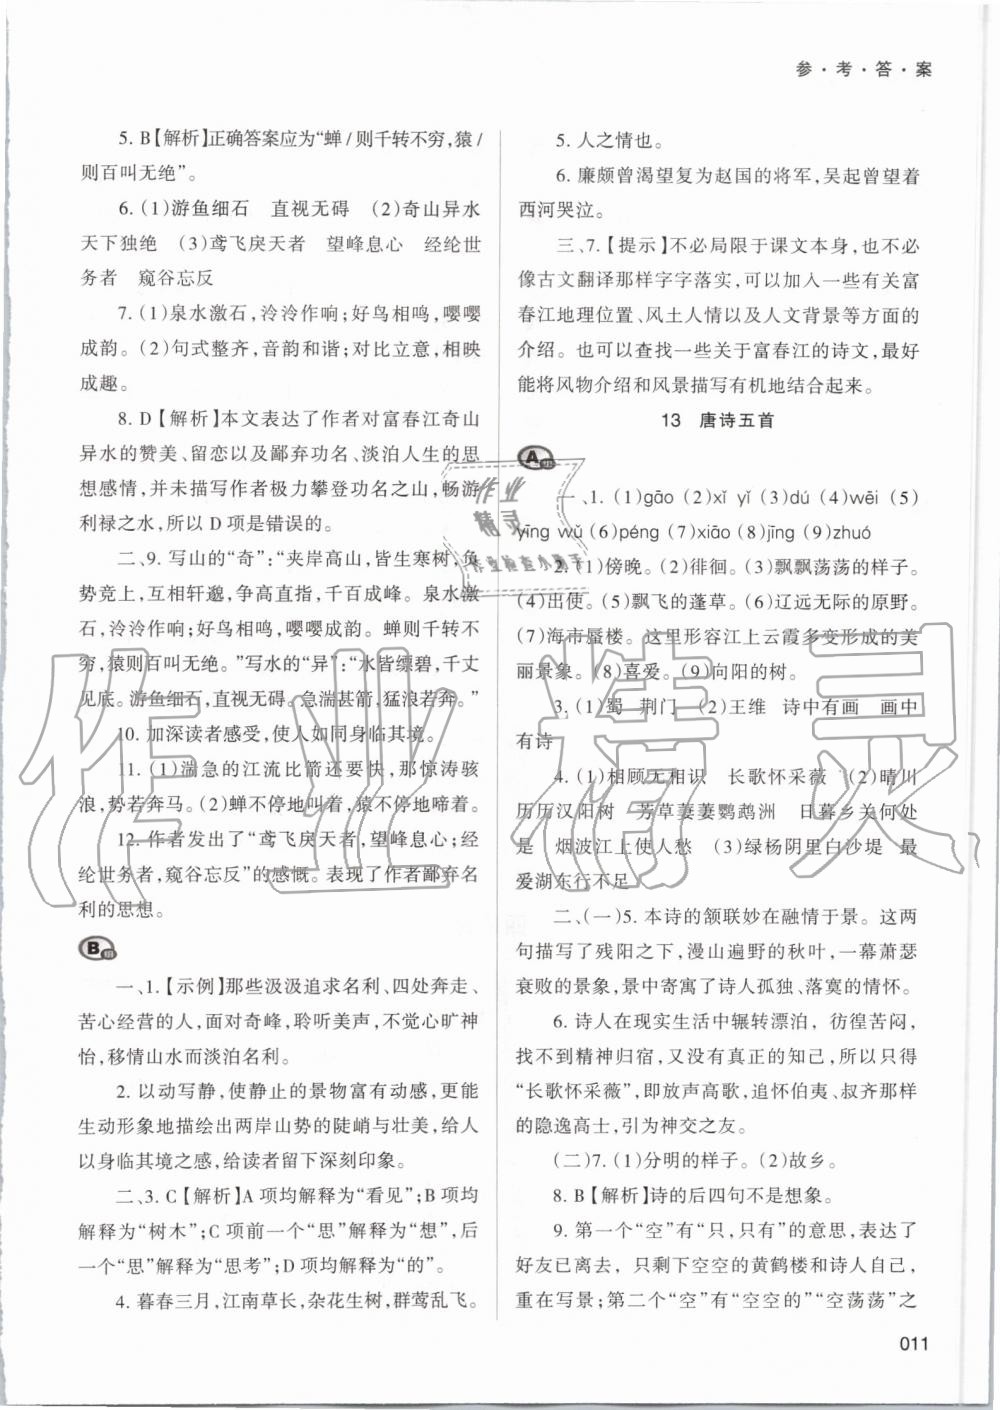 参·考·答·案
5. B【解析】正确答案应为“蝉/则千转不穷，猿/
则百叫无绝”。
6. (1)游鱼细石　直视无碍　(2)奇山异水
天下独绝　(3)鸢飞戾天者　望峰息心　经纶世
务者　窥谷忘反
7. (1)泉水激石，泠泠作响；好鸟相鸣，嘤嘤
成韵。(2)句式整齐，音韵和谐；对比立意，相映
成趣。
8. D【解析】本文表达了作者对富春江奇山
异水的赞美、留恋以及鄙弃功名、淡泊人生的思
想感情，并未描写作者极力攀登功名之山，畅游
利禄之水，所以 D 项是错误的。
二、9. 写山的“奇”：“夹岸高山，皆生寒树，负
势竞上，互相轩邈，争高直指，千百成峰。泉水激
石，泠泠作响；好鸟相鸣，嘤嘤成韵。蝉则千转不
穷，猿则百叫无绝。”写水的“异”：“水皆缥碧，千丈
见底。游鱼细石，直视无碍。急湍甚箭，猛浪若奔。”
10. 加深读者感受，使人如同身临其境。
11. (1)湍急的江流比箭还要快，那惊涛骇
浪，势若奔马。(2)蝉不停地叫着，猿不停地啼着。
12. 作者发出了“鸢飞戾天者，望峰息心；经
纶世务者，窥谷忘反”的感慨。表现了作者鄙弃名
利的思想。
B
一、1.【示例】那些汲汲追求名利、四处奔走、
苦心经营的人，面对奇峰，聆听美声，不觉心旷神
怡，移情山水而淡泊名利。
2. 以动写静，使静止的景物富有动感，更能
生动形象地描绘出两岸山势的陡峭与壮美，给人
以身临其境之感，给读者留下深刻印象。
二、3. C【解析】A 项均解释为“看见”；B 项均
解释为“树木”；C 项前一个“思”解释为“想”，后
一个“思”解释为“思考”；D 项均解释为“的”。
4. 暮春三月，江南草长，杂花生树，群莺乱飞。
5. 人之情也。
6. 廉颇曾渴望复为赵国的将军，吴起曾望着
西河哭泣。
三、7.【提示】不必局限于课文本身，也不必
像古文翻译那样字字落实，可以加入一些有关富
春江地理位置、风土人情以及人文背景等方面的
介绍。也可以查找一些关于富春江的诗文，最好
能将风物介绍和风景描写有机地结合起来。
13　唐诗五首
A
一、1. (1)gāo (2)xǐ yǐ (3)dú (4)wēi (5)
yīng wǔ (6)péng (7)xiāo (8)jīng (9)zhuó
2. (1)傍晚。(2)徘徊。(3)飘飘荡荡的样子。
(4)出使。(5)飘飞的蓬草。(6)辽远无际的原野。
(7)海市蜃楼。这里形容江上云霞多变形成的美
丽景象。(8)喜爱。(9)向阳的树。
3. (1)蜀　荆门　(2)王维　诗中有画　画中
有诗
4. (1)相顾无相识　长歌怀采薇　(2)晴川
历历汉阳树　芳草萋萋鹦鹉洲　日暮乡关何处
是　烟波江上使人愁　(3)绿杨阴里白沙堤　最
爱湖东行不足
二、(一)5. 本诗的颔联妙在融情于景。这两
句描写了残阳之下，漫山遍野的秋叶，一幕萧瑟
衰败的景象，寄寓了诗人孤独、落寞的情怀。
6. 诗人在现实生活中辗转漂泊，彷徨苦闷，
找不到精神归宿，又没有真正的知己，所以只得
“长歌怀采薇”，即放声高歌，追怀伯夷、叔齐那样
的隐逸高士，引为神交之友。
(二)7. (1)分明的样子。(2)故乡。
8. B【解析】诗的后四句不是想象。
9. 第一个“空”有“只，只有”的意思，表达了
好友已离去，只剩下空空的黄鹤楼和诗人自己，
重在写景；第二个“空”有“空空的”“空荡荡”之
011
作业
精灵
作业检查小助手
作业精灵